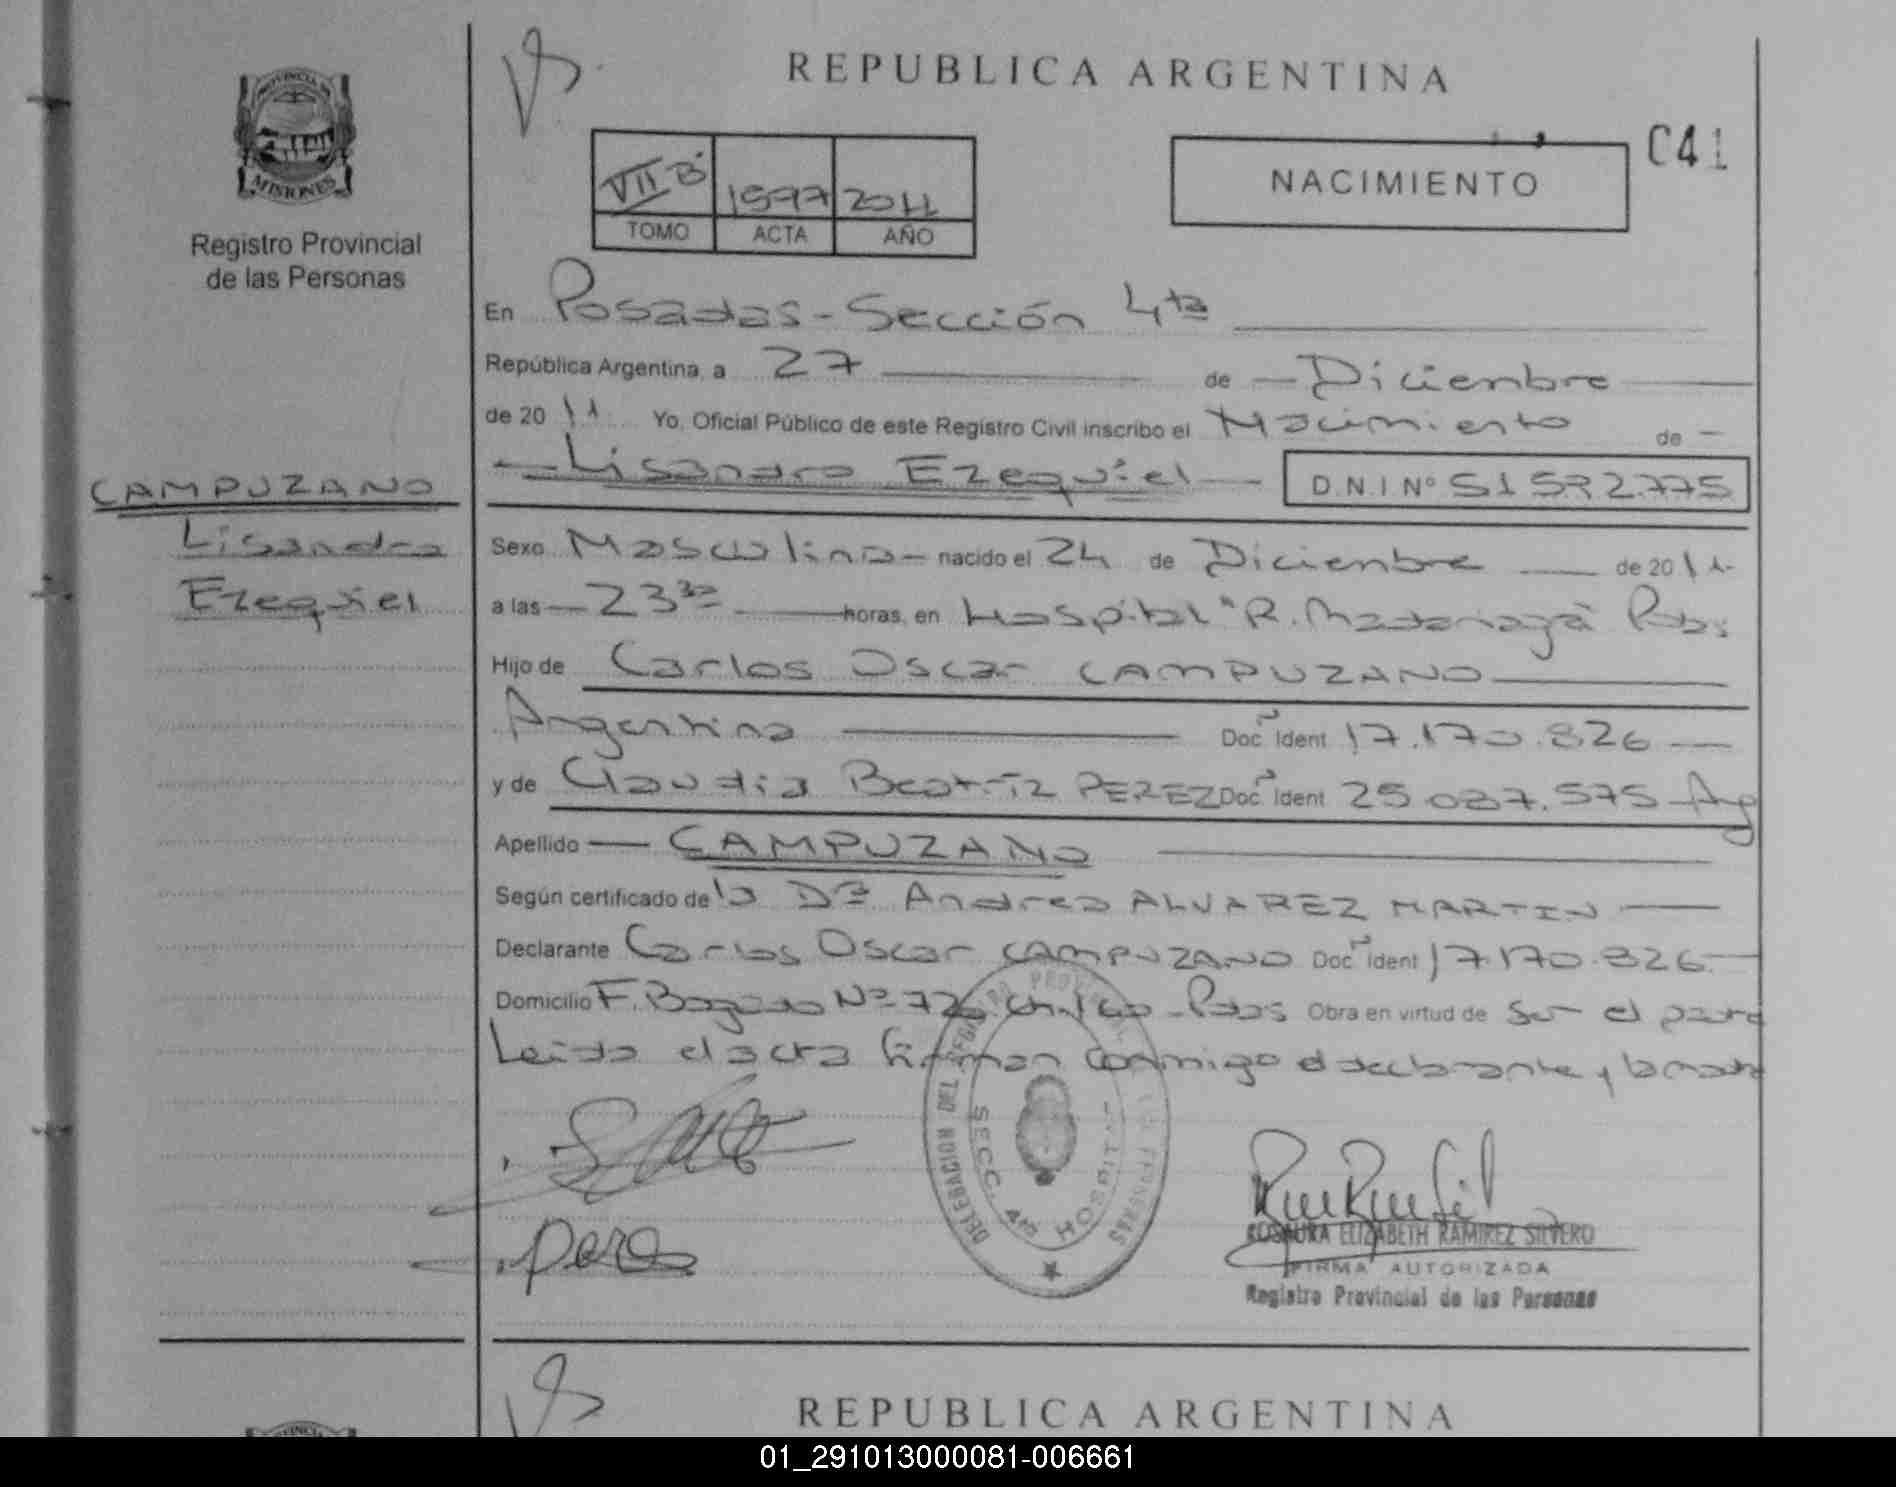 REPUBLICA ARGENTINA
PROVINCIA DE
MISIONES
Registro Provincial
de las Personas
VII B 1597 2011
TOMO ACTA AÑO
NACIMIENTO
C41
En Posadas - Sección 4ta
República Argentina, a 27 de Diciembre
de 2011 Yo, Oficial Público de este Registro Civil inscribo el Nacimiento de
Lisandro Ezequiel D.N.I Nº 51 592.775
CAMPUZANO
Lisandro
Ezequiel
Sexo Masculino - nacido el 24 de Diciembre de 2011
a las 23 30 horas, en Hospital "R. Madariaga" Pdas
Hijo de Carlos Oscar CAMPUZANO
Argentina Doc Ident 17.170.826
y de Claudia Beatriz PEREZ Doc Ident 25 087.575 Arg
Apellido CAMPUZANO
Según certificado de la Dra Andrea ALVAREZ MARTIN
Declarante Carlos Oscar CAMPUZANO Doc Ident 17.170.826
Domicilio F. Nº 72 Pdas Obra en virtud de Ser el padre
Leida el acta firman conmigo el declarante y la madre
DELEGACION DEL REGISTRO PROVINCIAL DE LAS PERSONAS
SECC. 4ta HOSPITAL
ROSAURA ELIZABETH RAMIREZ SILVERO
FIRMA AUTORIZADA
Registro Provincial de las Personas
REPUBLICA ARGENTINA
01_291013000081-006661